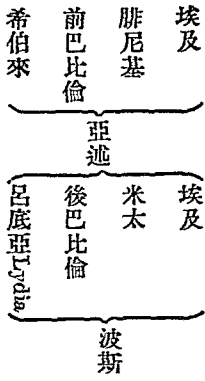 埃及
腓尼基
前巴比倫
希伯來
亞述
埃及
米太
後巴比倫
呂底亞Lydia
波斯